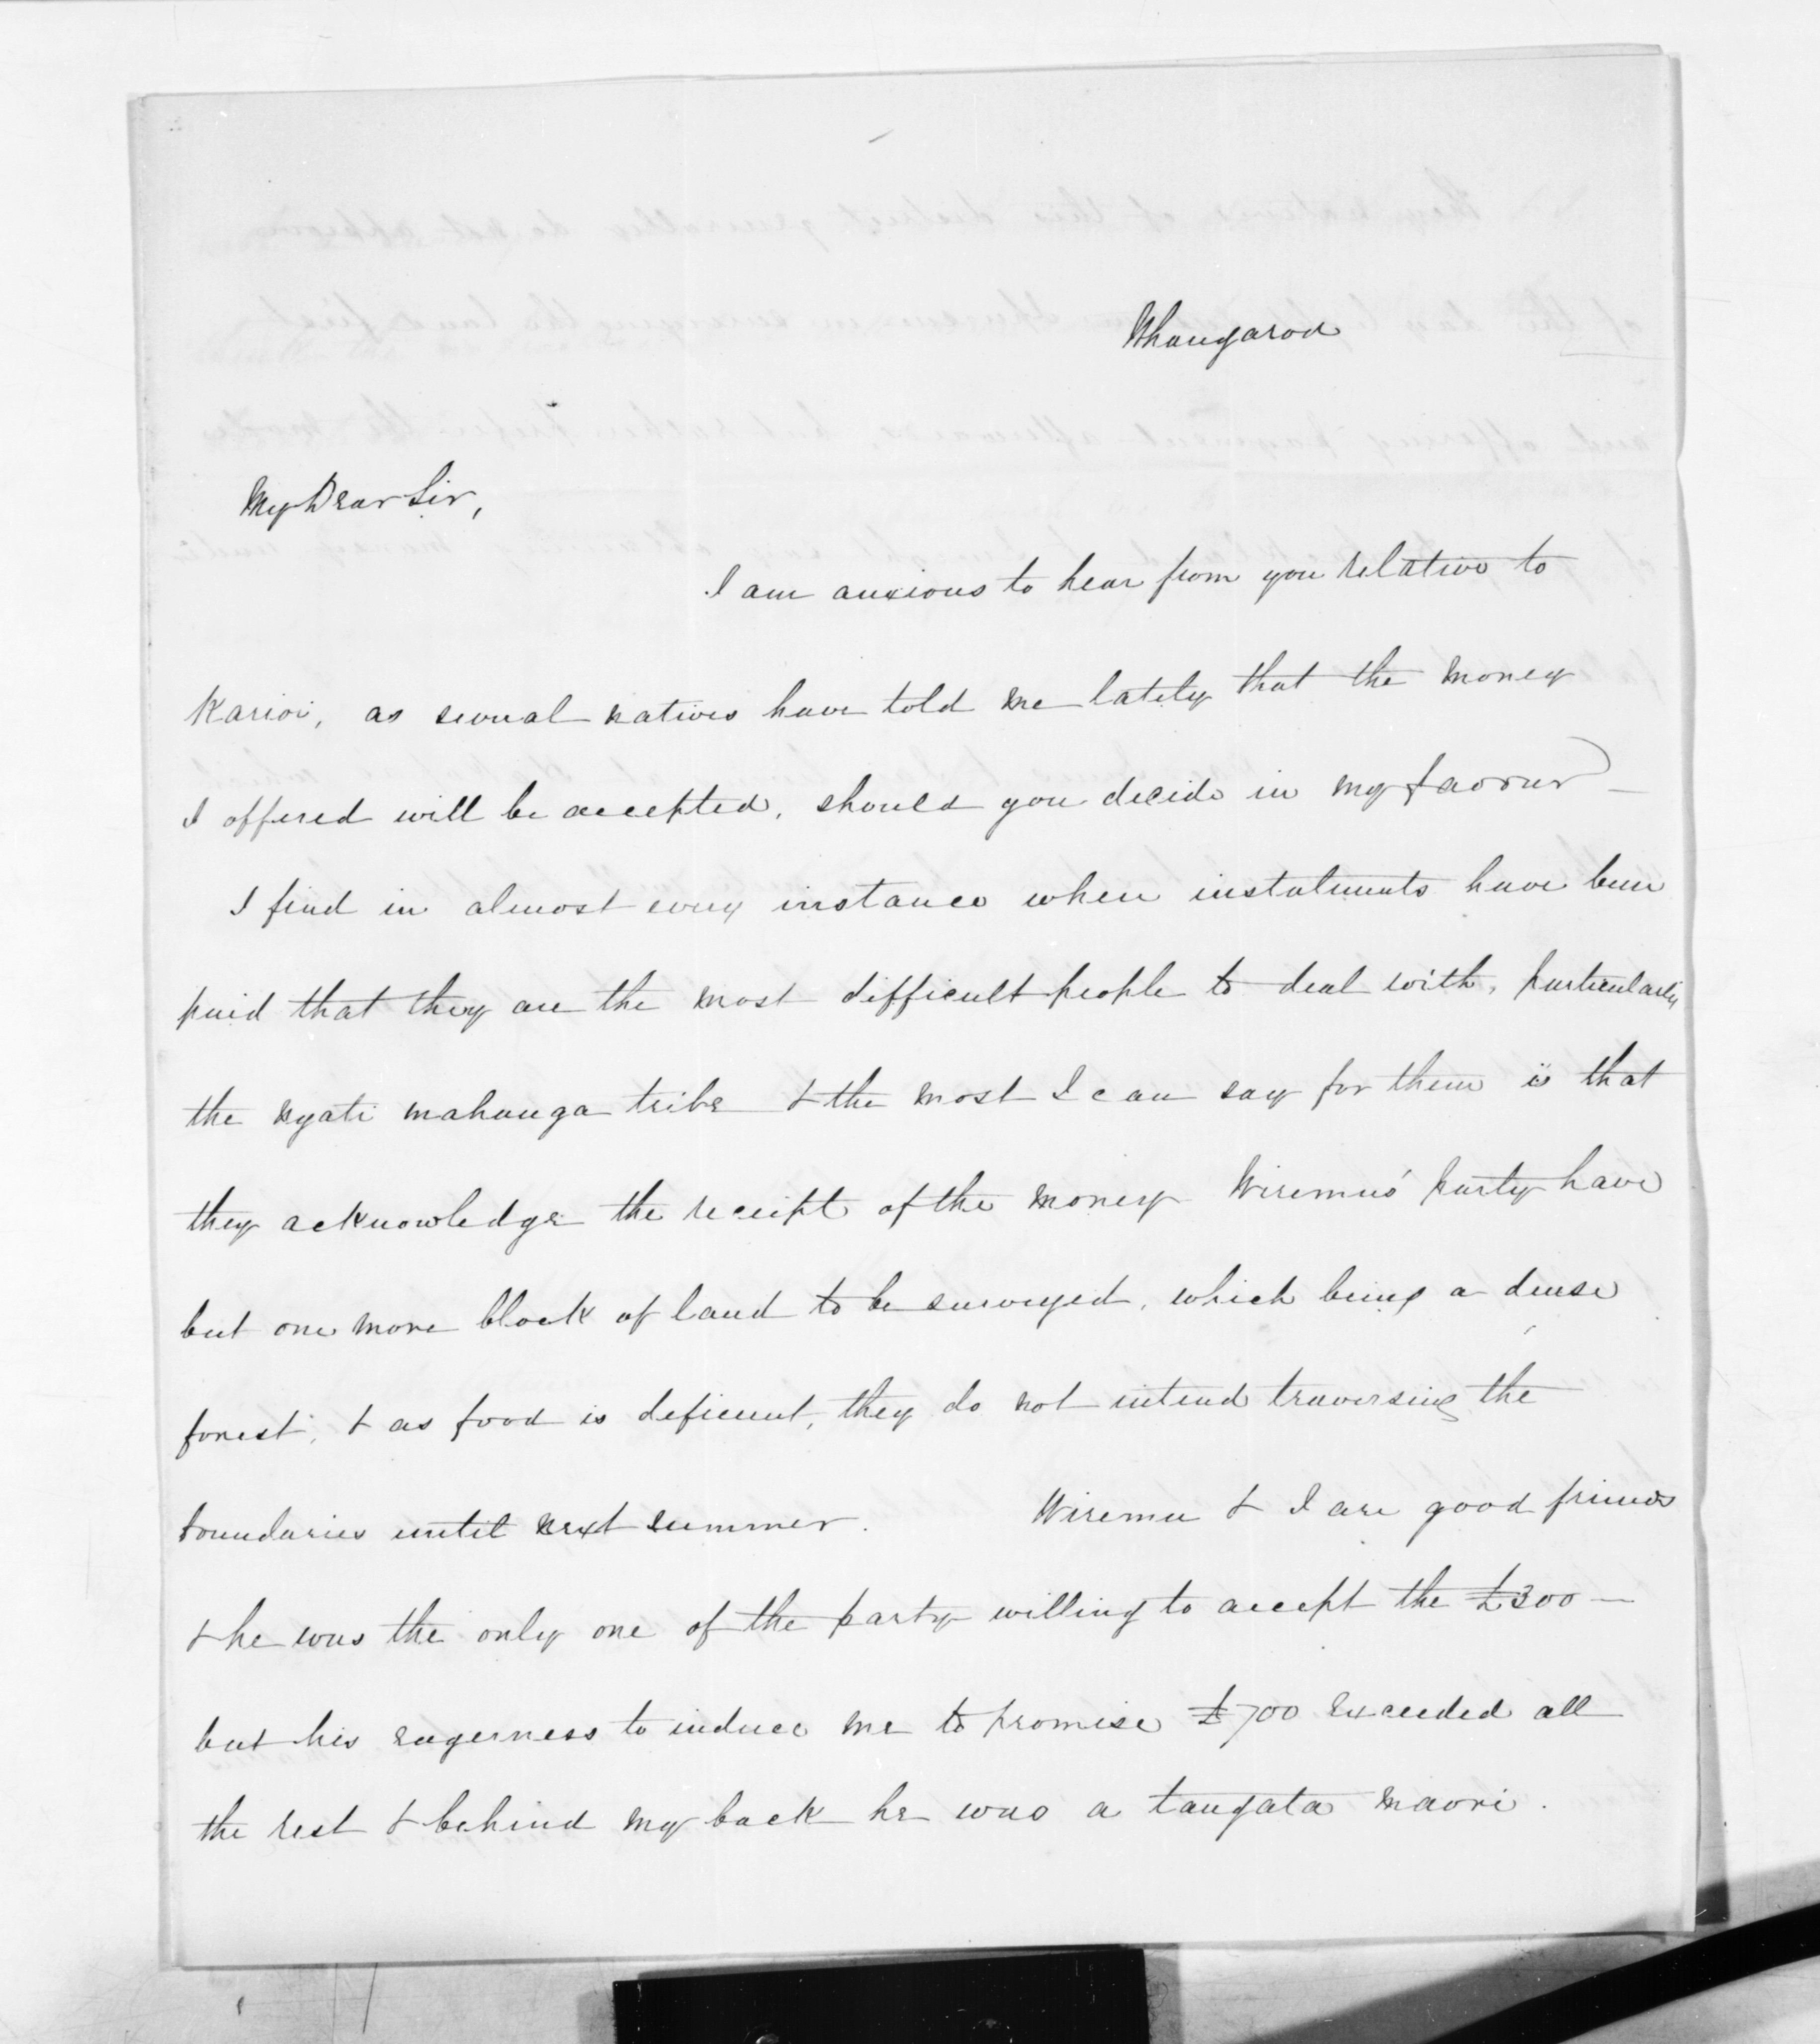 Whangaroa
My Dear Sir,
I am anxious to hear from you relative to
Karioi, as several natives have told me lately that the money
I offered will be accepted, should you decide in my favour —
I find in almost every instance when instalments have been
paid that they are the most difficult people to deal with, particularly
the Ngati mahanga tribe & the most I can say for them is that
they acknowledge the receipt of the money Wiremu's party have
but one more block of land to be surveyed, which being a dense
forest, & as food is deficient, they do not intend traversing the
boundaries until next summer. Wiremu & I are good friends
& he was the only one of the party willing to accept the £300 —
but his eagerness to induce me to promise £700 exceeded all
the rest & behind my back he was a tangata maori.